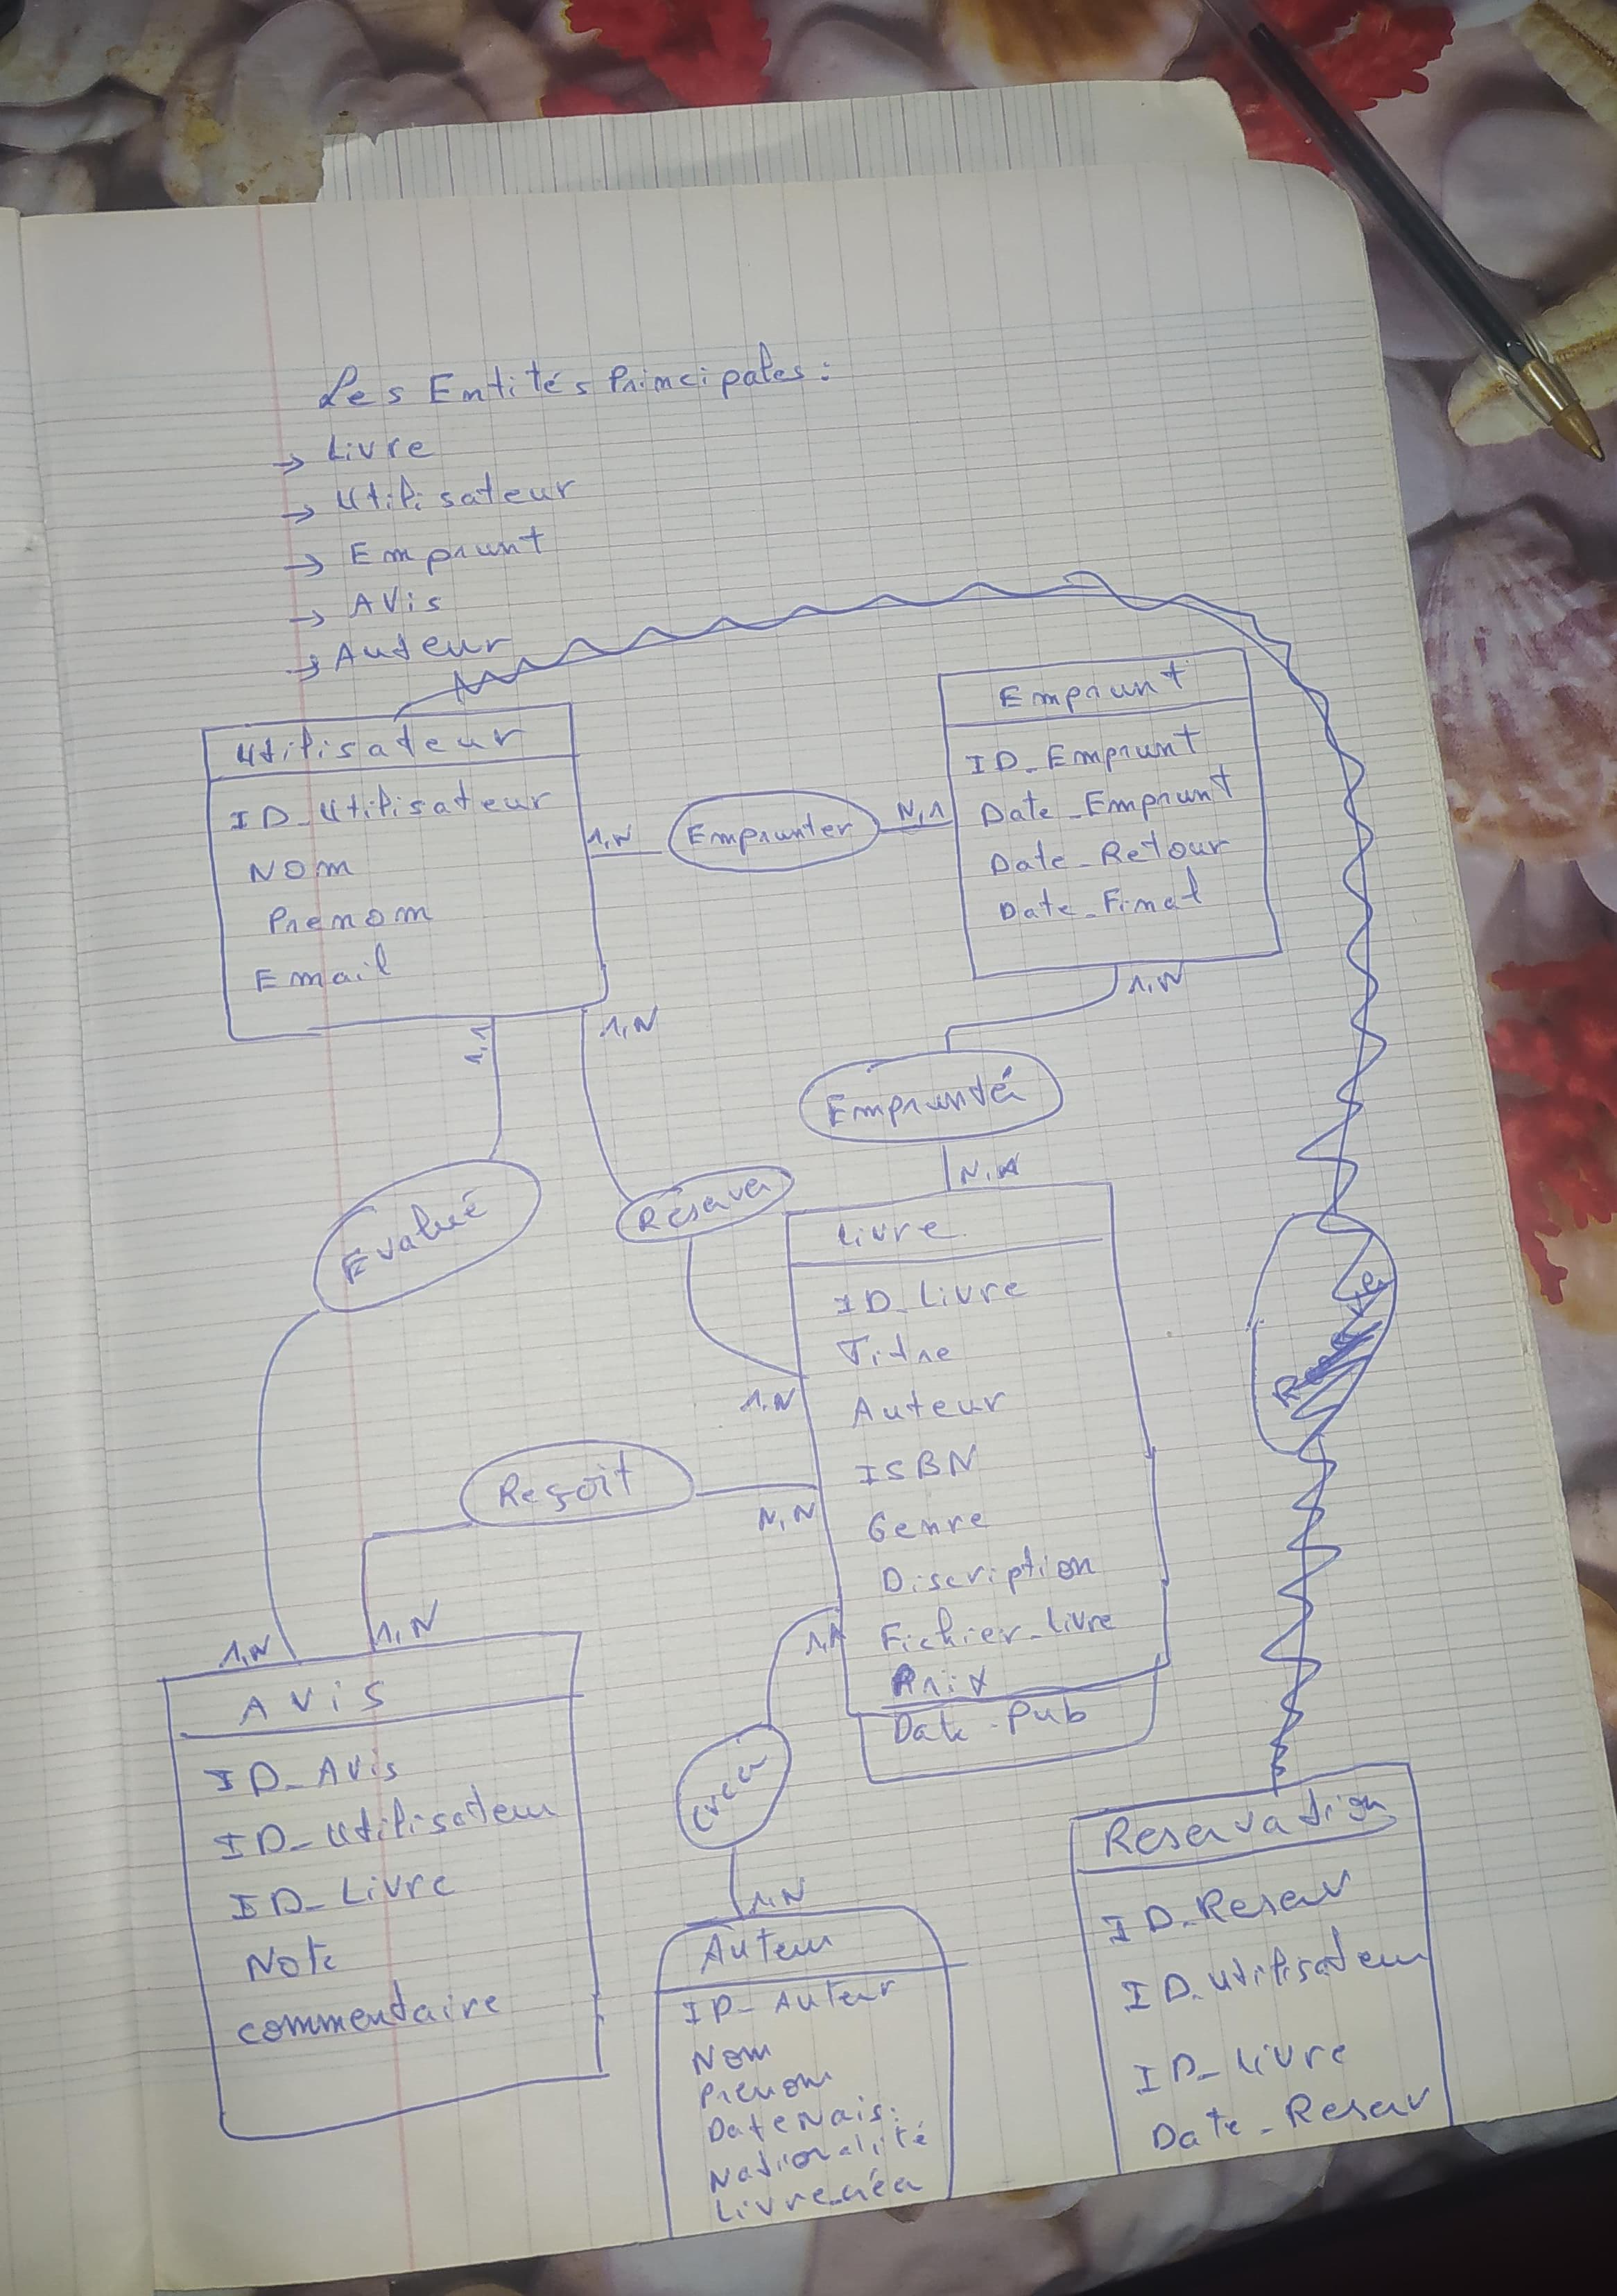 Les Entités Principales :
→ Livre
→ Utilisateur
→ Emprunt
→ AVis
→ Auteur
Utilisateur
ID_Utilisateur
Nom
Prenom
Email
1,N
Emprunter
N,1
Emprunt
ID_Emprunt
Date_Emprunt
Date_Retour
Date_Final
1,N
1,N
Emprunté
N,N
Evalué
Réserver
Livre
ID_Livre
Titre
Auteur
ISBN
Genre
Discription
Fichier_Livre
Prix
Date_Pub
1,N
Reçoit
N,N
1,N
1,N
AVis
ID_Avis
ID_Utilisateur
ID_Livre
Note
commentaire
Créer
1,N
Auteur
ID_Auteur
Nom
Prénom
Date Nais.
Nationalité
Livre_créer
Reservation
ID_Reserv
ID_utilisateur
ID_Livre
Date_Reserv